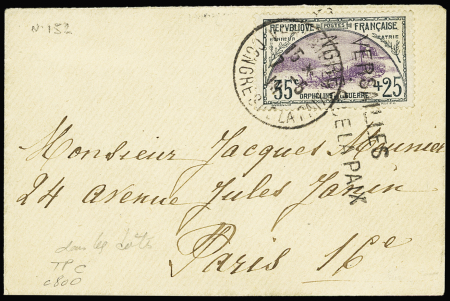 N° 152
REPUBLIQUE FRANÇAISE
POSTES
35c +25c
ORPHELINS GUERRE
CONGRES DE LA PAIX
VERSAILLES
CONGRES DE LA PAIX
Monsieur Jacques Meunier
24 avenue Jules Janin
Paris 16e
TPC
c800